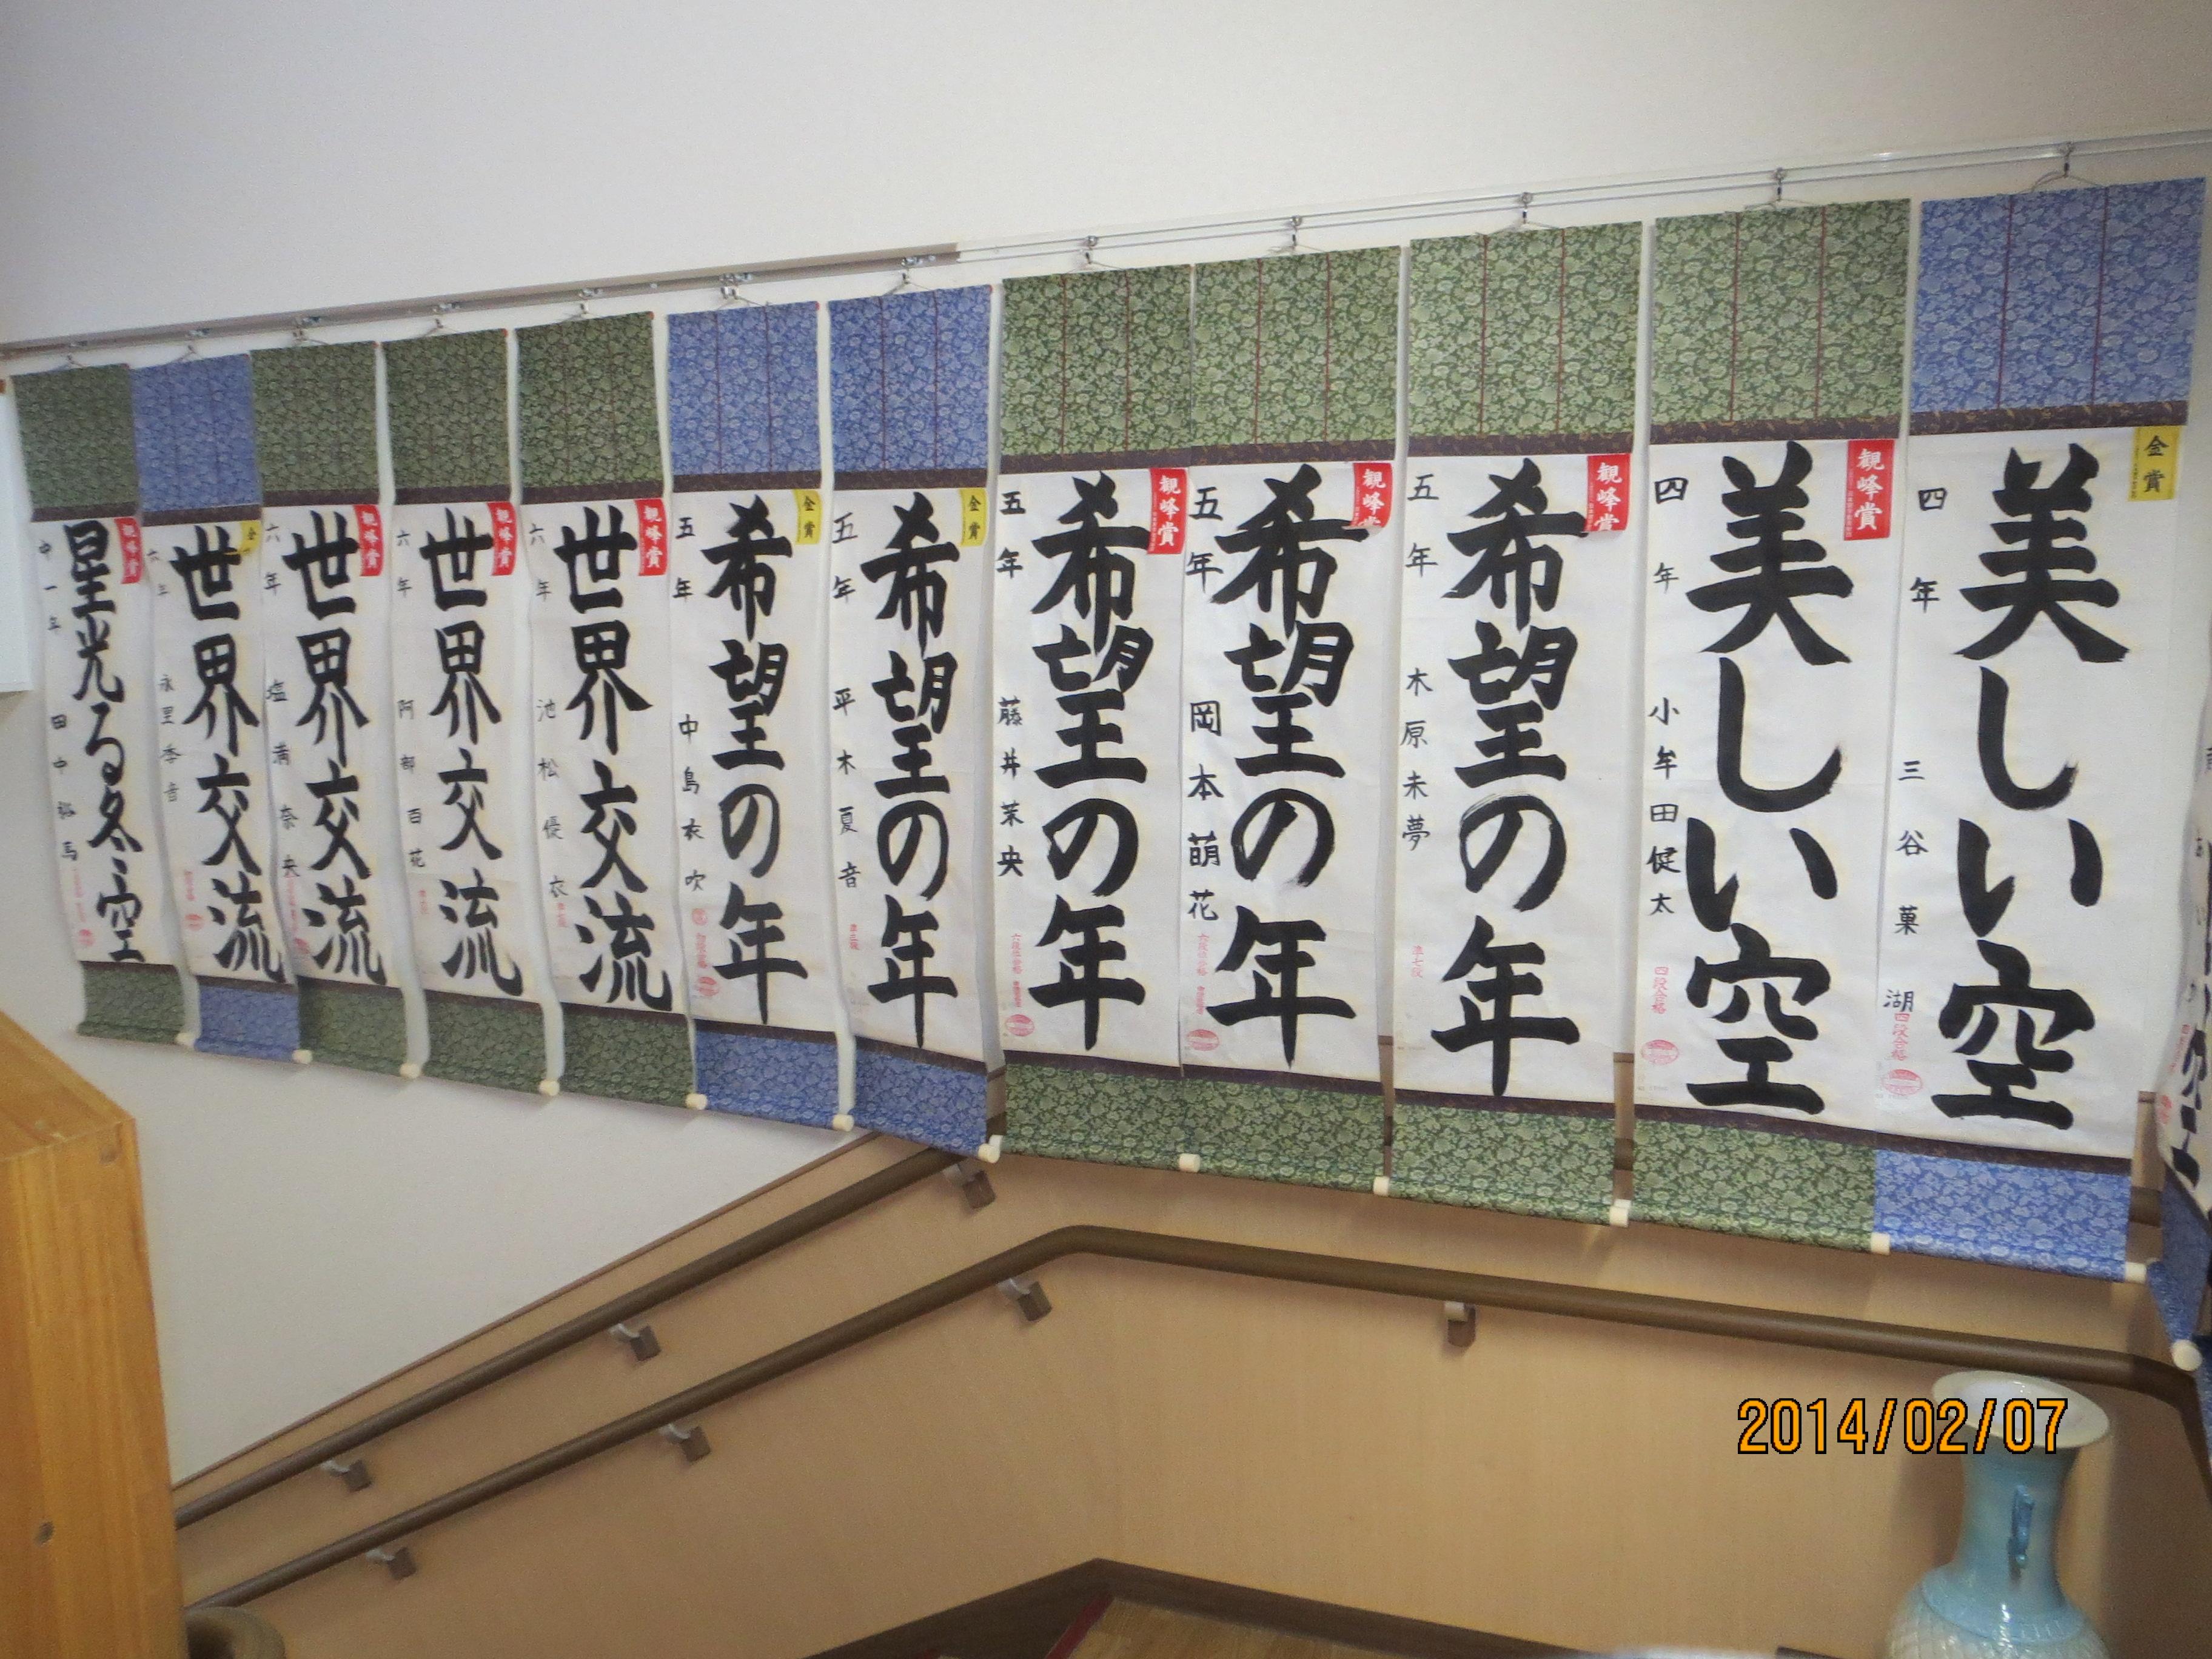 金賞
美しい空
四年 三谷菓湖
四段合格
観峰賞
美しい空
四年 小牟田健太
四段合格
観峰賞
希望の年
五年 木原未夢
準七段
観峰賞
希望の年
五年 岡本萌花
六段合格
観峰賞
希望の年
五年 藤井茉央
六段合格
金賞
希望の年
五年 平木夏音
金賞
希望の年
五年 中島衣吹
観峰賞
世界交流
六年 池松優衣
観峰賞
世界交流
六年 阿部百花
観峰賞
世界交流
六年 塩満奈央
金
世界交流
六年 永里季音
観峰賞
星光る冬空
中一年 田中 馬
2014/02/07